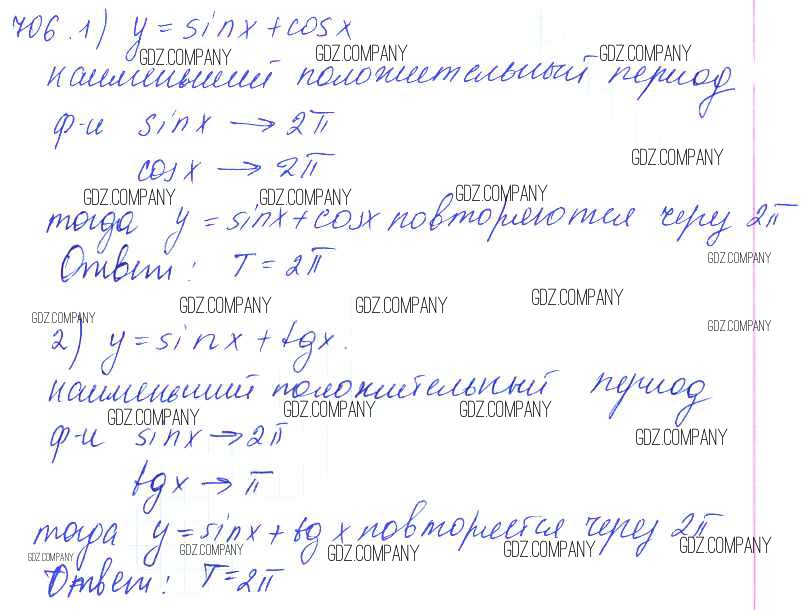 706.1) y = sinx + cosx
GDZ.COMPANY GDZ.COMPANY GDZ.COMPANY
наименьший положительный период
ф-и sinx → 2π
cosx → 2π
GDZ.COMPANY
GDZ.COMPANY GDZ.COMPANY GDZ.COMPANY
тогда y = sinx + cosx повторяются через 2π
GDZ.COMPANY
Ответ: T = 2π
GDZ.COMPANY GDZ.COMPANY GDZ.COMPANY
GDZ.COMPANY GDZ.COMPANY
2) y = sinx + tgx.
наименьший положительный период
GDZ.COMPANY GDZ.COMPANY GDZ.COMPANY
ф-и sinx → 2π
GDZ.COMPANY
tgx → π
тогда y = sinx + tgx повторяется через 2π
GDZ.COMPANY GDZ.COMPANY GDZ.COMPANY GDZ.COMPANY GDZ.COMPANY
Ответ: T = 2π